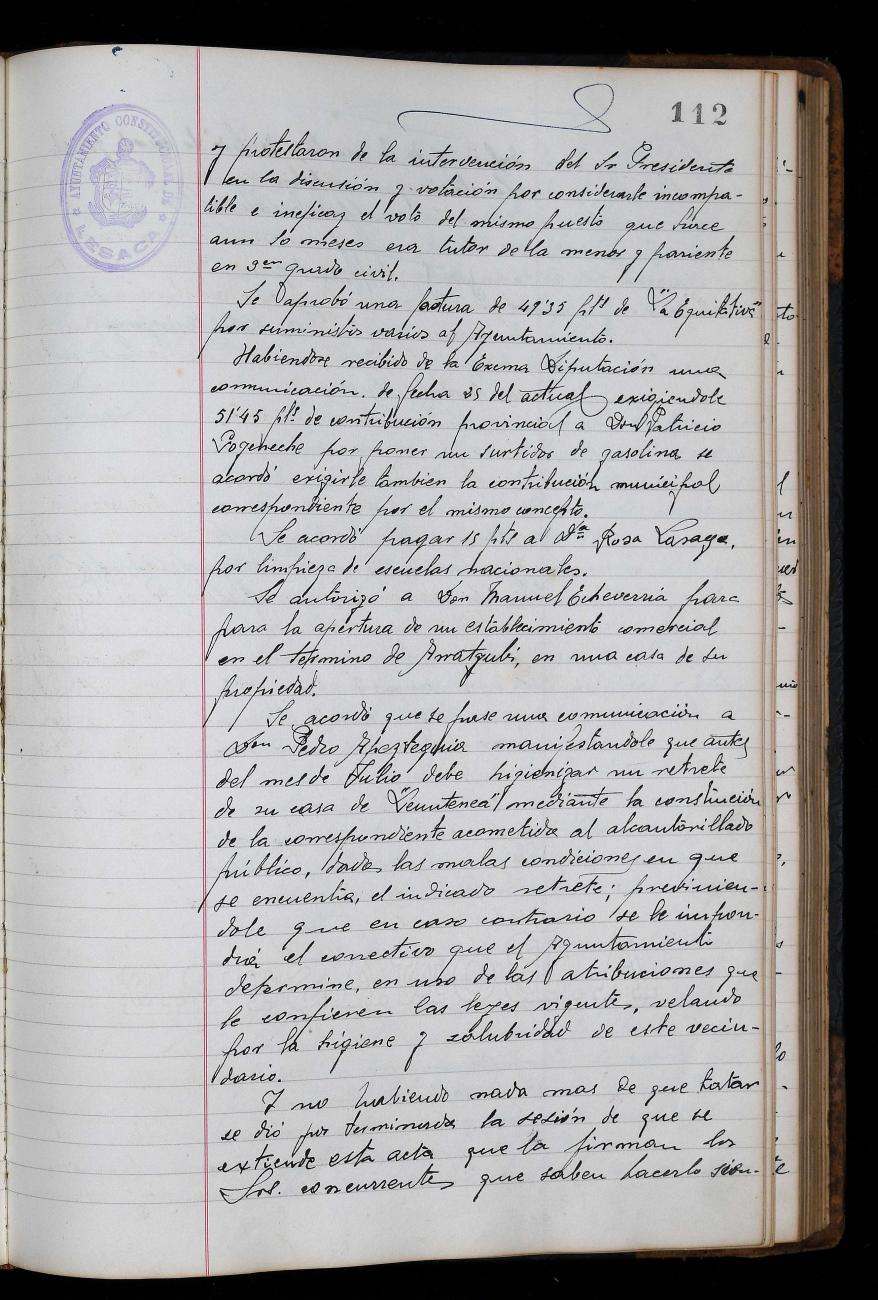 112
AYUNTAMIENTO CONSTITUCIONAL DE
LESACA
y protestaron de la intervención del Sr Presidente
en la discusión y votación por considerarle incompa-
tible e ineficaz el voto del mismo puesto que hace
aun 10 meses era tutor de la menor y pariente
en 3er grado civil.
Se aprobó una factura de 49'35 pts de "La Equitativa"
por suministros varios al Ayuntamiento.
Habiendose recibido de la Excma Diputación una
comunicación. de fecha 25 del actual exigiendole
51'45 pts. de contribución provincial a Don Patricio
por poner un surtidor de gasolina se
acordó exigirle tambien la contribución municipal
correspondiente por el mismo concepto.
Se acordó pagar 15 pts a Dña Rosa
por limpieza de escuelas nacionales.
Se autorizó a Don Manuel Echeverria para
para la apertura de un establecimiento comercial
en el termino de en una casa de su
propiedad.
Se acordó que se pase una comunicación a
Don Pedro Apezteguia manifestandole que antes
del mes de Julio debe higienizar un retrete
de su casa de mediante la construcción
de la correspondiente acometida al alcantarillado
público, dadas las malas condiciones en que
se encuentra, el indicado retrete; previnien-
dole que en caso contrario se le impon-
drá el correctivo que el Ayuntamiento
determine, en uso de las atribuciones que
le confieren las leyes vigentes, velando
por la higiene y salubridad de este vecin-
dario.
Y no habiendo nada mas de que tratar
se dió por terminada la sesión de que se
extiende esta acta que la firman los
Srs. concurrentes que saben hacerlo sien-